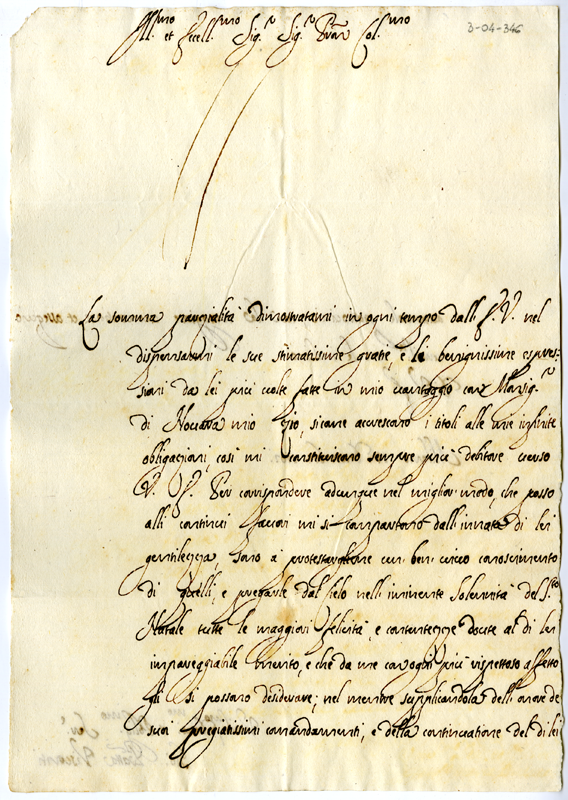 Ill.mo et Eccell.mo Sig.r Sig.r Pron Col.mo
3-04-346
La somma parzialità dimostratami in ogni tempo dall S. V. nel
dispensarmi le sue stimatissime gratie, e le benignissime espres-
sioni da lei più volte fatte in mio vantaggio con Monsig.r
di Nocera mio Zio, sicome accrescono i titoli alle mie infinite
obligazioni, così mi constituiscono sempre più debitore verso
V. S. Per corrispondere adunque nel miglior modo, che posso
alli continui favori mi si compartono dall innata di lei
gentilezza, sono a protestargliene un ben vivo conoscimento
di quelli, e pregarle dal Cielo nell iminente Solennità del S.to
Natale tutte le maggiori felicità, e contentezze dovute al di lei
impareggiabile merito, e che da me con ogni più rispettoso affetto
gli si possano desiderare; nel mentre supplicandola dell onore de
suoi pregiatissimi comandamenti, e della continuatione del di lei